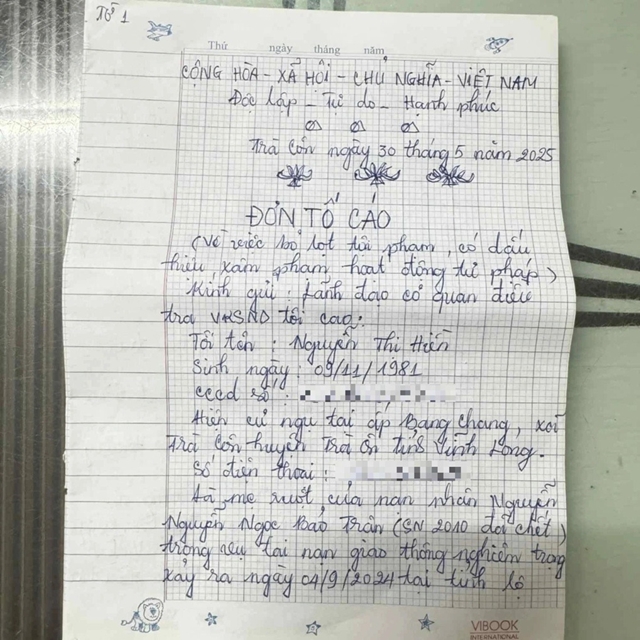 Tờ 1
Thứ ngày tháng năm
CỘNG HÒA - XÃ HỘI - CHỦ NGHĨA - VIỆT NAM
Độc lập - Tự do - Hạnh phúc
Trà Côn ngày 30 tháng 5 năm 2025
ĐƠN TỐ CÁO
(Về việc bỏ lọt tội phạm, có dấu
hiệu xâm phạm hoạt động tư pháp)
Kính gửi: Lãnh đạo cơ quan điều
tra VKSND tối cao:
Tôi tên: Nguyễn Thị Hiền
Sinh ngày: 09/11/1981
cccd số:
Hiện cư ngụ tại ấp Bang Chang, xã
Trà Côn huyện Trà Ôn tỉnh Vĩnh Long.
Số điện thoại:
Là mẹ ruột của nạn nhân Nguyễn
Nguyễn Ngọc Bảo Trân (SN 2010 đã chết)
trong vụ tai nạn giao thông nghiêm trọng
xảy ra ngày 04/9/2024 tại tỉnh lộ
VIBOOK
INTERNATIONAL